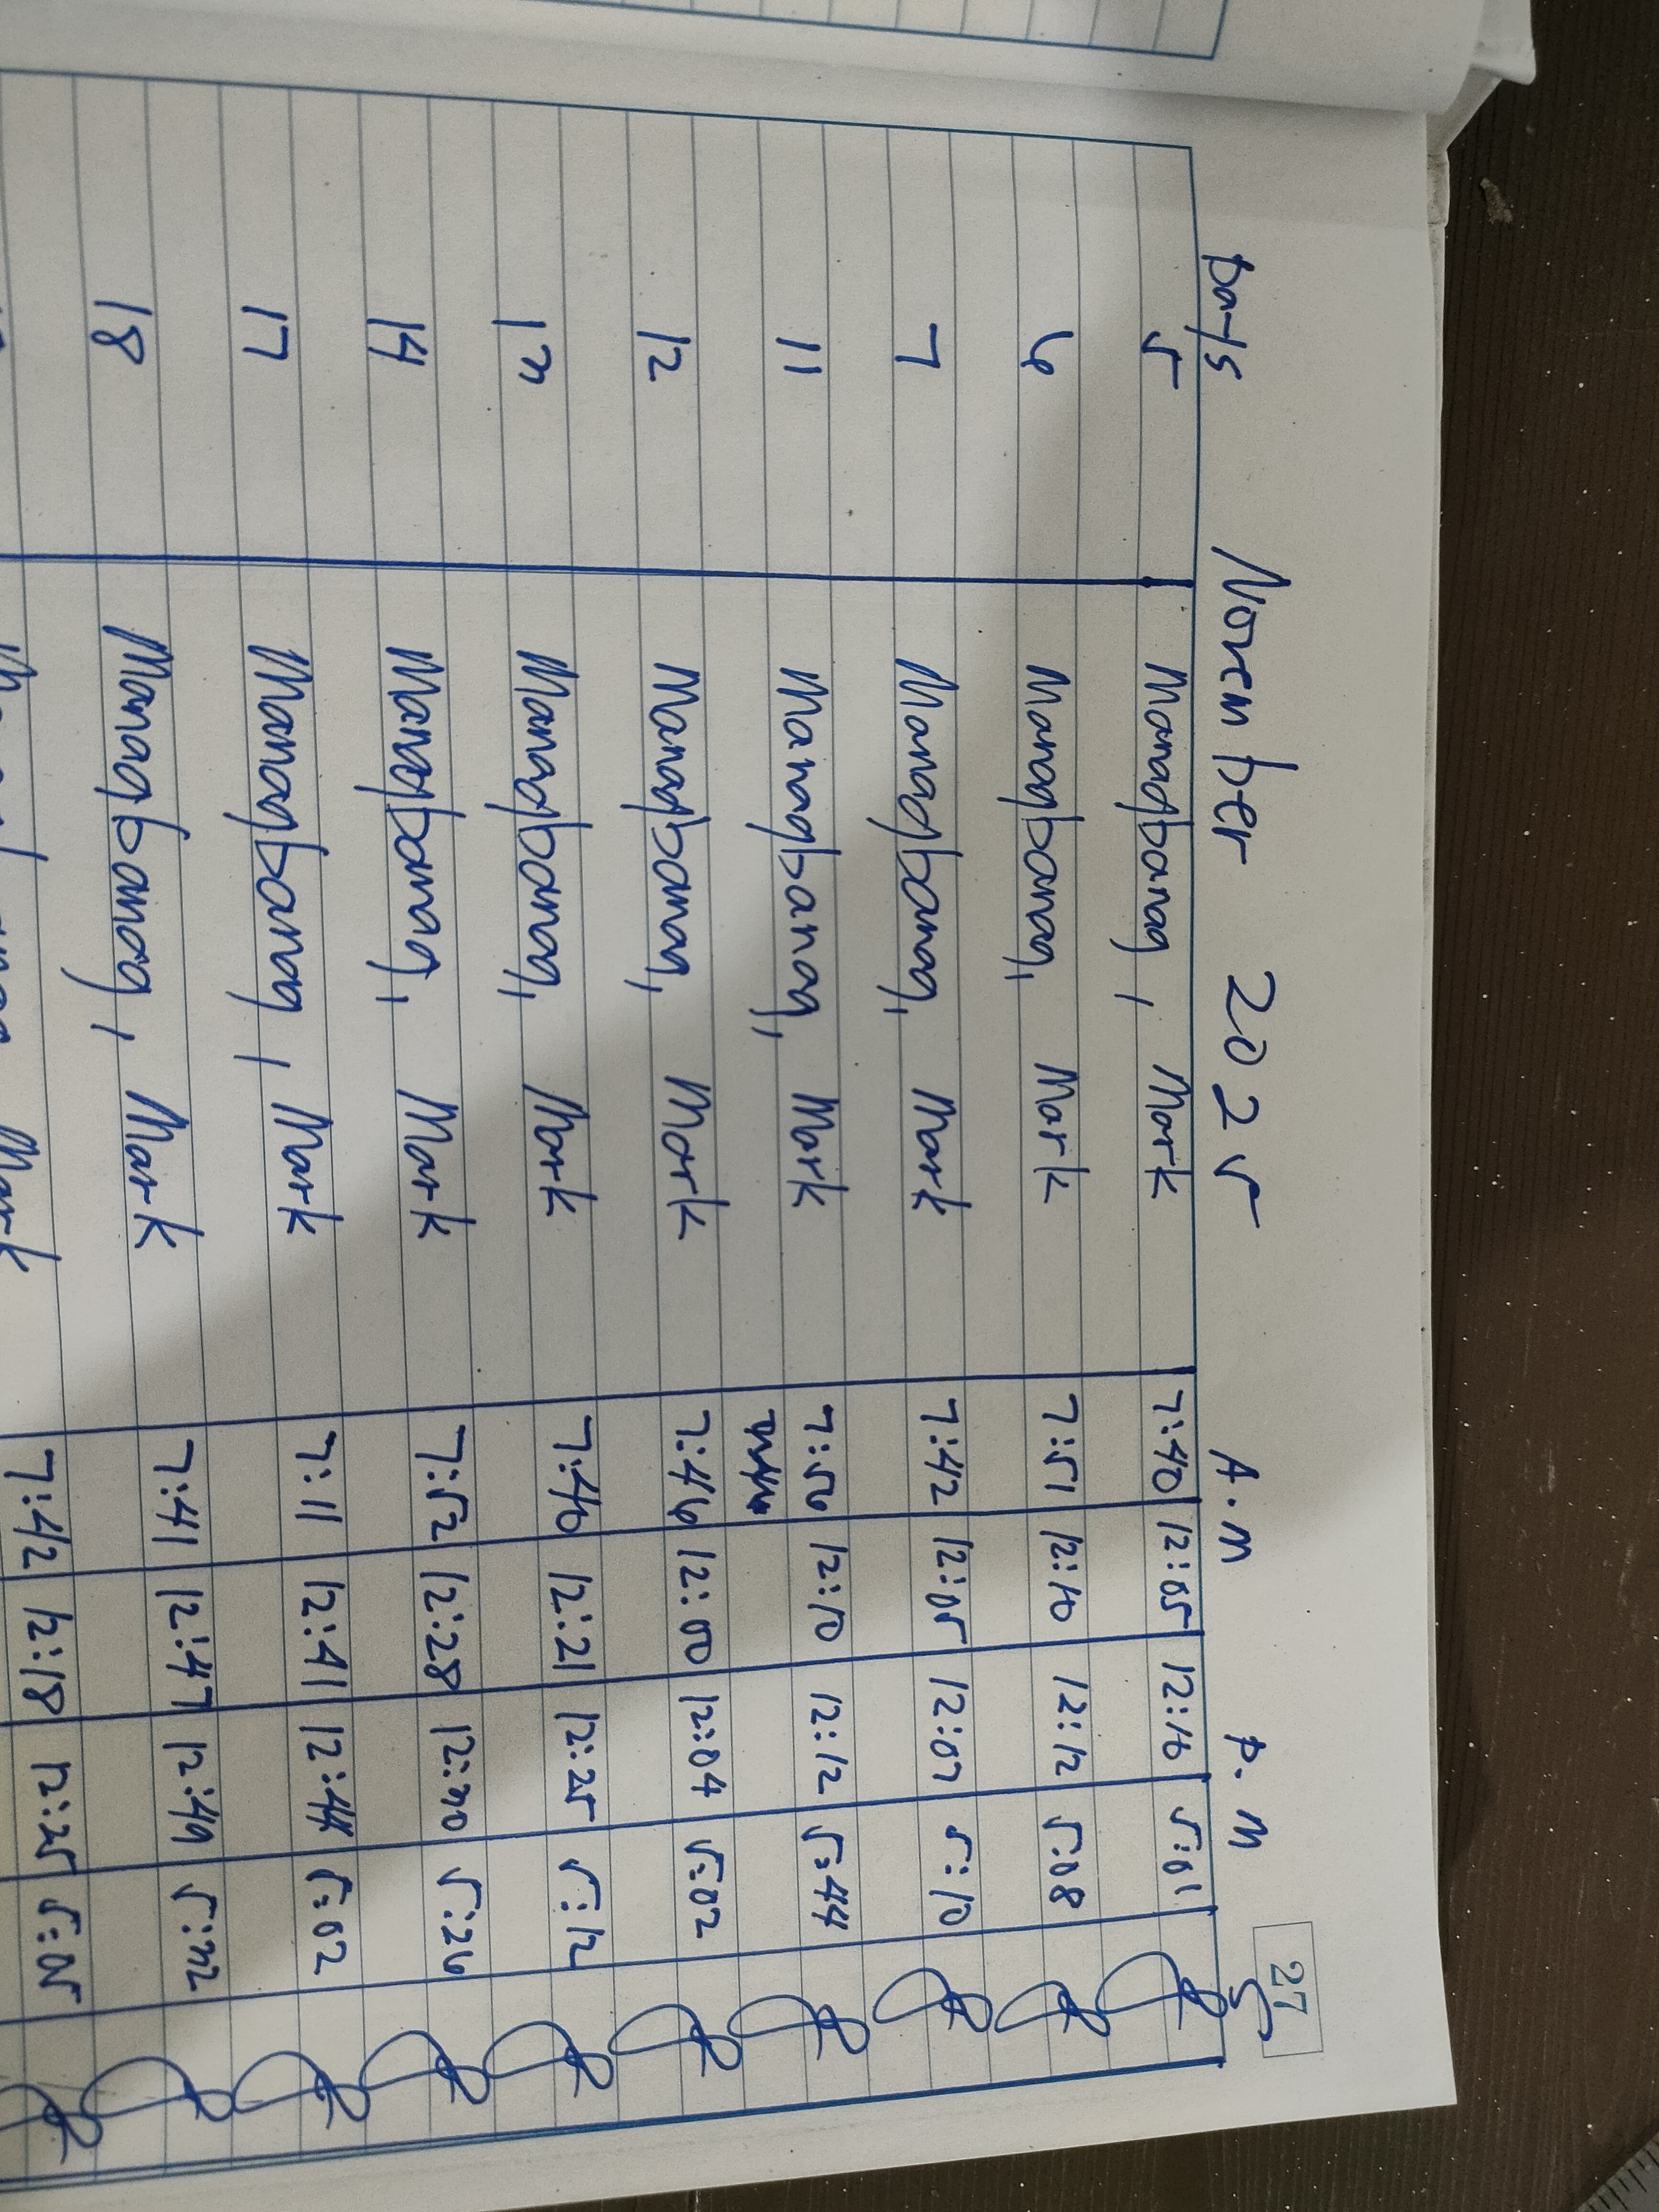 27
Days November 2025 A.M P.M S
5 Managbanag, Mark 7:40 12:05 12:16 5:01
6 Managbanag, Mark 7:51 12:10 12:12 5:08
7 Managbanag, Mark 7:42 12:05 12:07 5:10
11 Managbanag, Mark 7:56 12:10 12:12 5:44
12 Managbanag, Mark 7:46 12:00 12:04 5:02
13 Managbanag, Mark 7:40 12:21 12:25 5:12
14 Managbanag, Mark 7:52 12:28 12:30 5:26
17 Managbanag, Mark 7:11 12:41 12:44 5:02
18 Managbanag, Mark 7:41 12:47 12:49 5:32
Mark 7:42 12:18 12:25 5:05